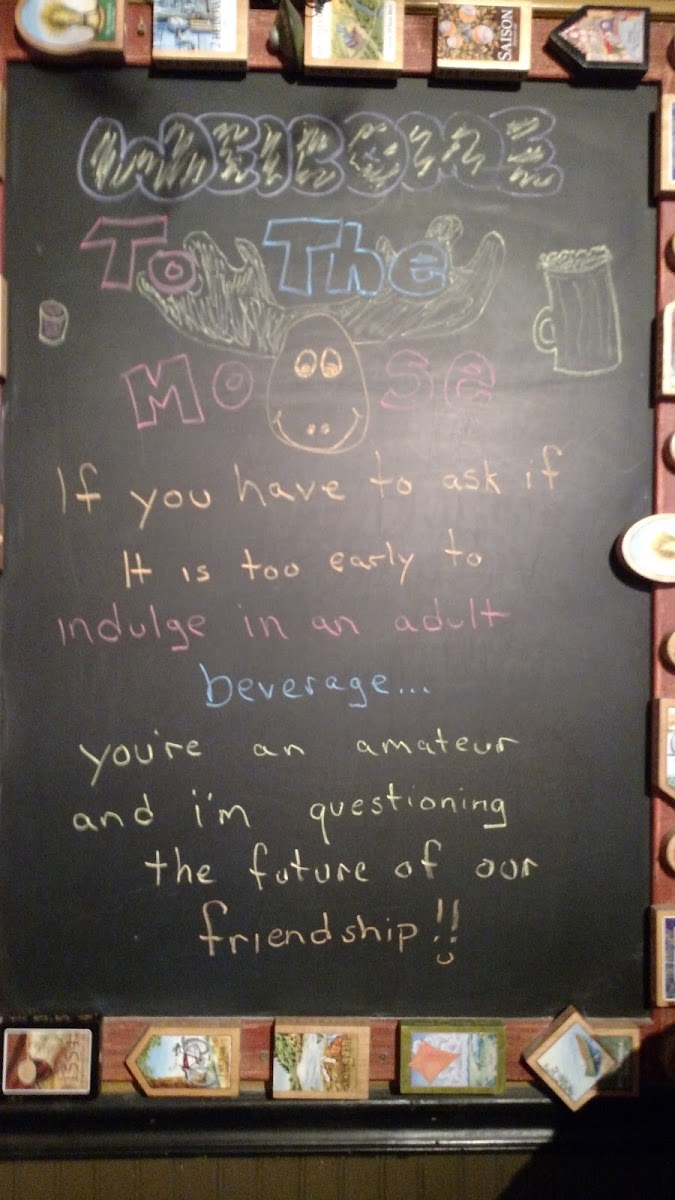 SAISON
WELCOME
To The
Mo se
If you have to ask if
It is too early to
indulge in an adult
beverage...
you're an amateur
and i'm questioning
the future of our
friendship!!
1554